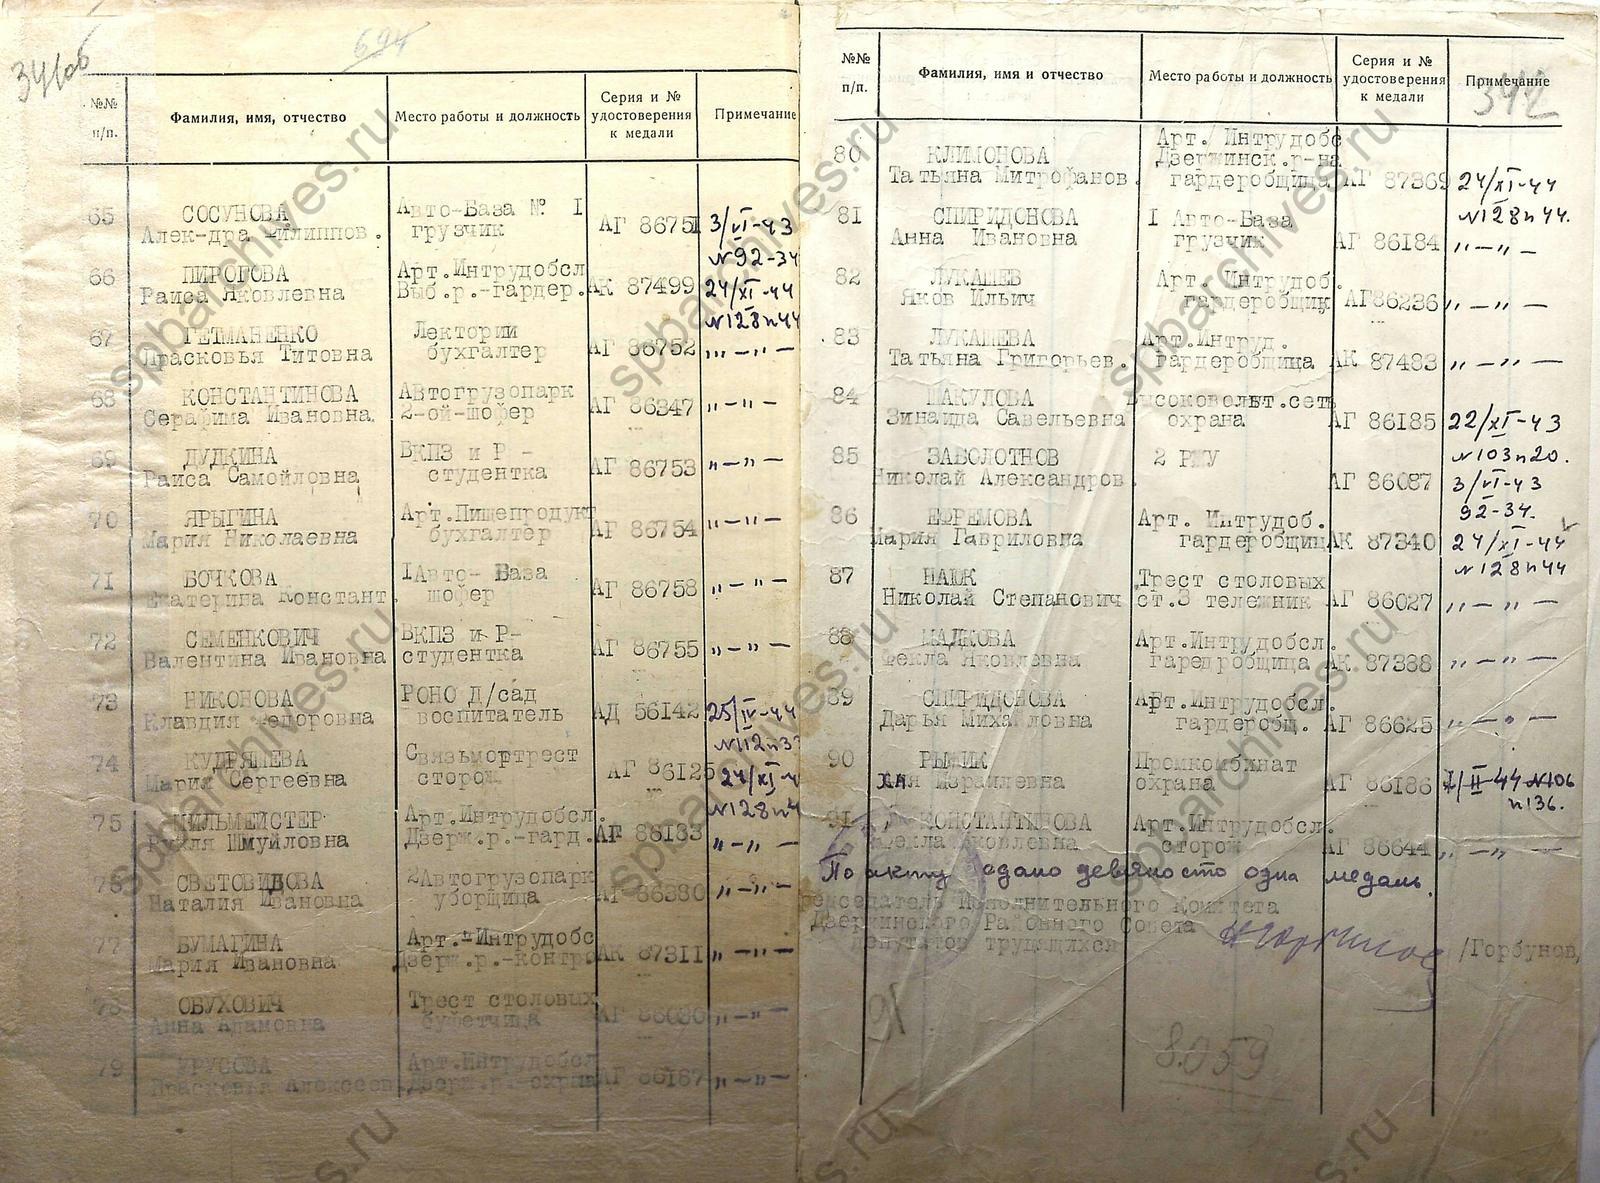 341об
694
№№ п/п.
Фамилия, имя, отчество
Место работы и должность
Серия и № удостоверения к медали
Примечание
65 СОСУНОВА Авто-База № I АГ 86751 3/VI-43
Алек-дра Филиппов. грузчик №92-34
66 ПИРОГОВА Арт.Интрудобсл АК 87499 24/XI-44
Раиса Яковлевна Выб.р.-гардер. №128п44
67 ГЕТМАНЕНКО Лекторий АГ 86752 „-„-
Прасковья Титовна бухгалтер
68 КОНСТАНТИНОВА Автогрузопарк АГ 86347 „-„-
Серафима Ивановна. 2-ой-шофер
69 ДУДКИНА ВКПЗ и Р - АГ 86753 „-„-
Раиса Самойловна студентка
70 ЯРЫГИНА Арт.Пищепродукт АГ 86754 „-„-
Мария Николаевна бухгалтер
71 БОЧКОВА IАвто- База АГ 86758 „-„-
Екатерина Констант. шофер
72 СЕМЕНКОВИЧ ВКПЗ и Р- АГ 86755 „-„-
Валентина Ивановна студентка
73 НИКОНОВА РОНО Д/сад АД 56142 25/IV-44
Клавдия Федоровна воспитатель №112п33
74 КУДРЯШЕВА АГ 86125 24/XI-4
Мария Сергеевна сторож №128п4
75 Арт.Интрудобсл. АГ 86183 „-„-
Рухля Шмуйловна Дзерж.р.-гард.
76 СВЕТОВИДОВА 2Автогрузопарк АГ 86380 „-„-
Наталия Ивановна уборщица
77 БУМАГИНА Арт.-Интрудобс АК 87311 „-„-
Мария Ивановна Дзерж.р.-контро
78 ОБУХОВИЧ Трест столовых АГ 86080 „-„-
Анна Адамовна буфетчица
79 УРУСОВА Арт.Интрудобсл АГ 86167 „-„-
Прасковья Алексеев. Дзерж.р.-охрана
№№ п/п.
Фамилия, имя и отчество
Место работы и должность
Серия и № удостоверения к медали
Примечание
342
80 КЛИМОНОВА Арт. Интрудобс
Татьяна Митрофанов. Дзержинск.р-на
гардеробщица АГ 87369 24/XI-44
№128п44.
81 СПИРИДОНОВА I Авто-База АГ 86184 „-„-
Анна Ивановна грузчик
82 ЛУКАШЕВ Арт. Интрудоб. АГ86236 „-„-
Яков Ильич гардеробщик
83 ЛУКАШЕВА Арт.Интруд. АК 87483 „-„-
Татьяна Григорьев. гардеробщица
84 ШАКУЛОВА Высоковольт.сеть АГ 86185 22/XI-43
Зинаида Савельевна охрана №103п20.
85 ЗАБОЛОТНОВ 2 РЖУ АГ 86087 3/VI-43
Николай Александров. 92-34.
86 ЕФРЕМОВА Арт. Интрудоб. АК 87340 24/XI-44
Мария Гавриловна гардеробщиц №128п44
87 Трест столовых АГ 86027 „-„-
Николай Степанович ст.3 тележник
88 МАЛКОВА Арт.Интрудобсл. АК 87388 „-„-
Фекла Яковлевна гаредробщица
89 СПИРИДОНОВА Арт.Интрудобсл. АГ 86625 „-„-
Дарья Михайловна гардеробщ.
90 Промкомбинат АГ 86186 I/II-44 №106
Израилевна охрана п136.
91 КОНСТАНТИНОВА Арт.Интрудобсл. АГ 86644 „-„-
Фекла Яковлевна сторож
По акту сдано девяносто одна медаль.
Председатель Исполнительного Комитета
Дзержинского Районного Совета
депутатов трудящихся /Горбунов,
91
8.059
spbarchives.ru